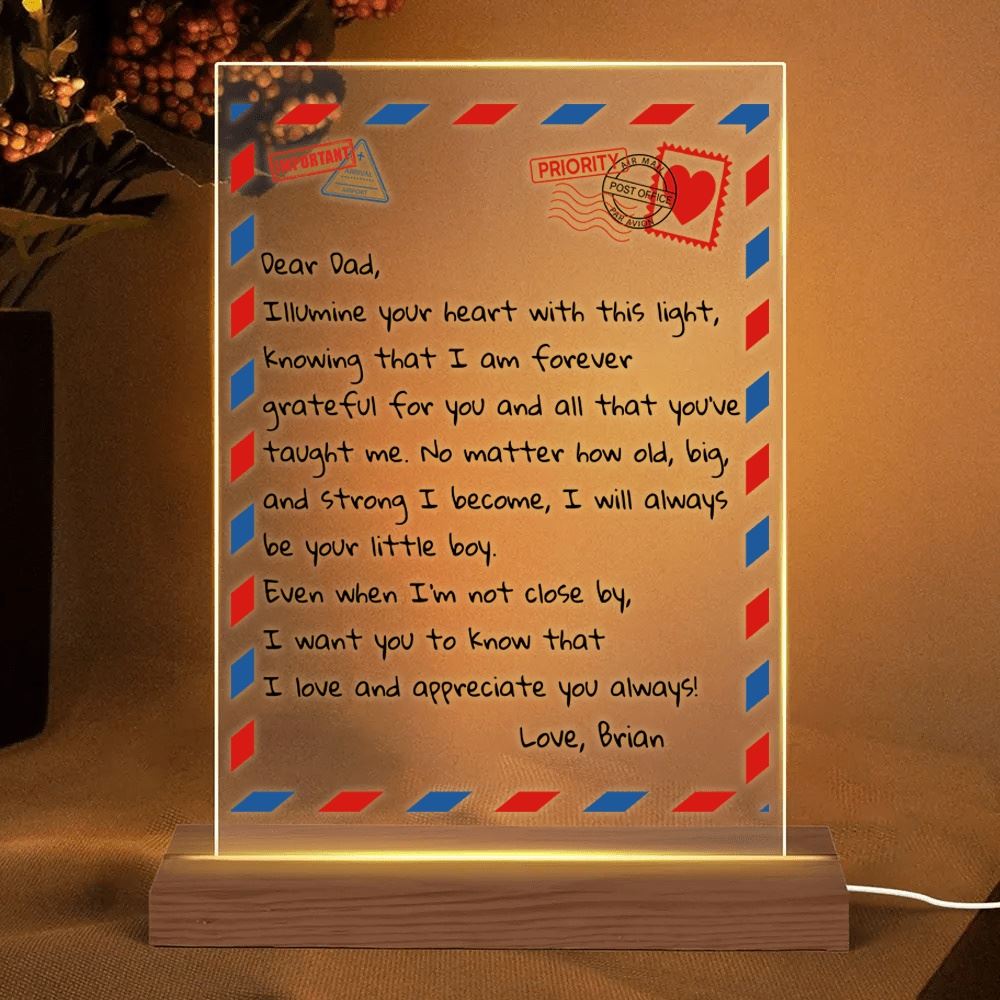 IMPORTANT
ARRIVAL
AIRPORT
PRIORITY
AIR MAIL
POST OFFICE
PAR AVION
Dear Dad,
Illumine your heart with this light,
knowing that I am forever
grateful for you and all that you've
taught me. No matter how old, big,
and strong I become, I will always
be your little boy.
Even when I'm not close by,
I want you to know that
I love and appreciate you always!
Love, Brian